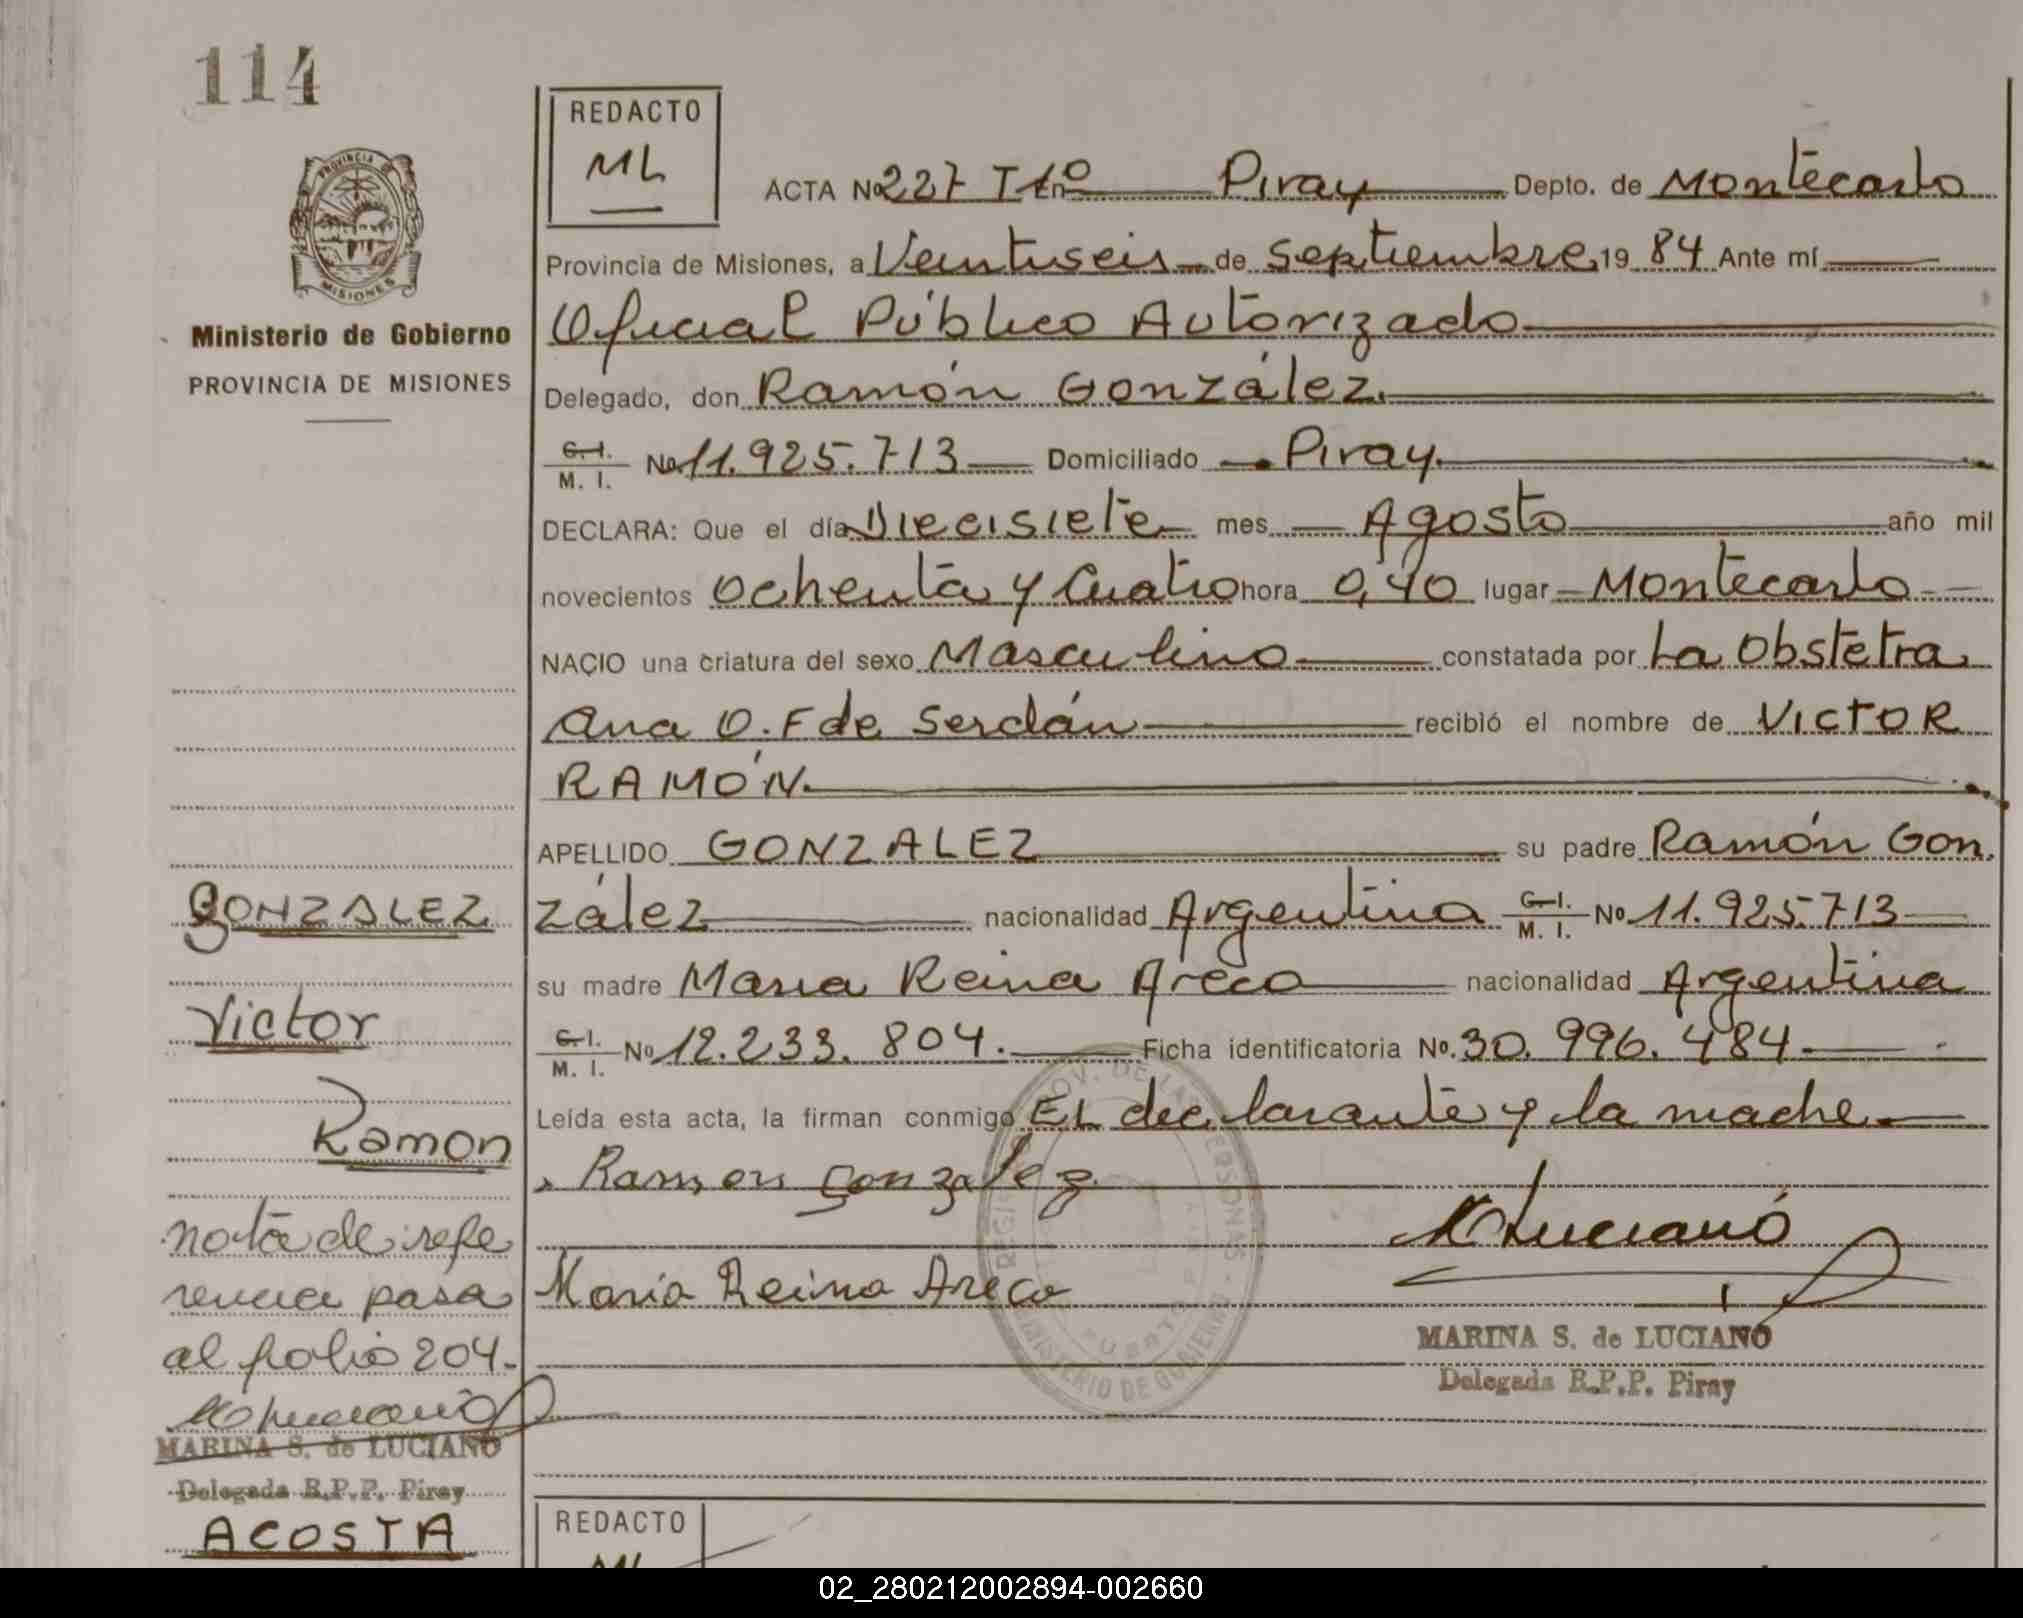 114
REDACTO
ML
ACTA Nº 227 T 1º En Piray Depto. de Montecarlo
PROVINCIA
MISIONES
Provincia de Misiones, a Veintiseis de Septiembre 19 84 Ante mí
Oficial Público Autorizado
Ministerio de Gobierno
PROVINCIA DE MISIONES
Delegado, don Ramón González.
C. I.
M. I. Nº 11.925.713 Domiciliado Piray.
DECLARA: Que el día Diecisiete mes Agosto año mil
novecientos Ochenta y Cuatro hora 0,40 lugar Montecarlo
NACIO una criatura del sexo Masculino constatada por La Obstetra
Ana O. F de Serdán recibió el nombre de VICTOR
RAMÓN.
APELLIDO GONZALEZ su padre Ramón Gon
zález nacionalidad Argentina C. I.
M. I. Nº 11.925.713
su madre Maria Reina Areco nacionalidad Argentina
C. I.
M. I. Nº 12.233.804. Ficha identificatoria Nº. 30.996.484
Leída esta acta, la firman conmigo EL declarante y la madre.
Ramon gonzalez
María Reina Areco
MLuciano
MARINA S. de LUCIANO
Delegada R.P.P. Piray
GONZALEZ
Victor
Ramon
nota de refe
rencia pasa
al folio 204.
MLuciano
MARINA S. de LUCIANO
Delegada R.P.P. Piray
ACOSTA
REDACTO
02_280212002894-002660